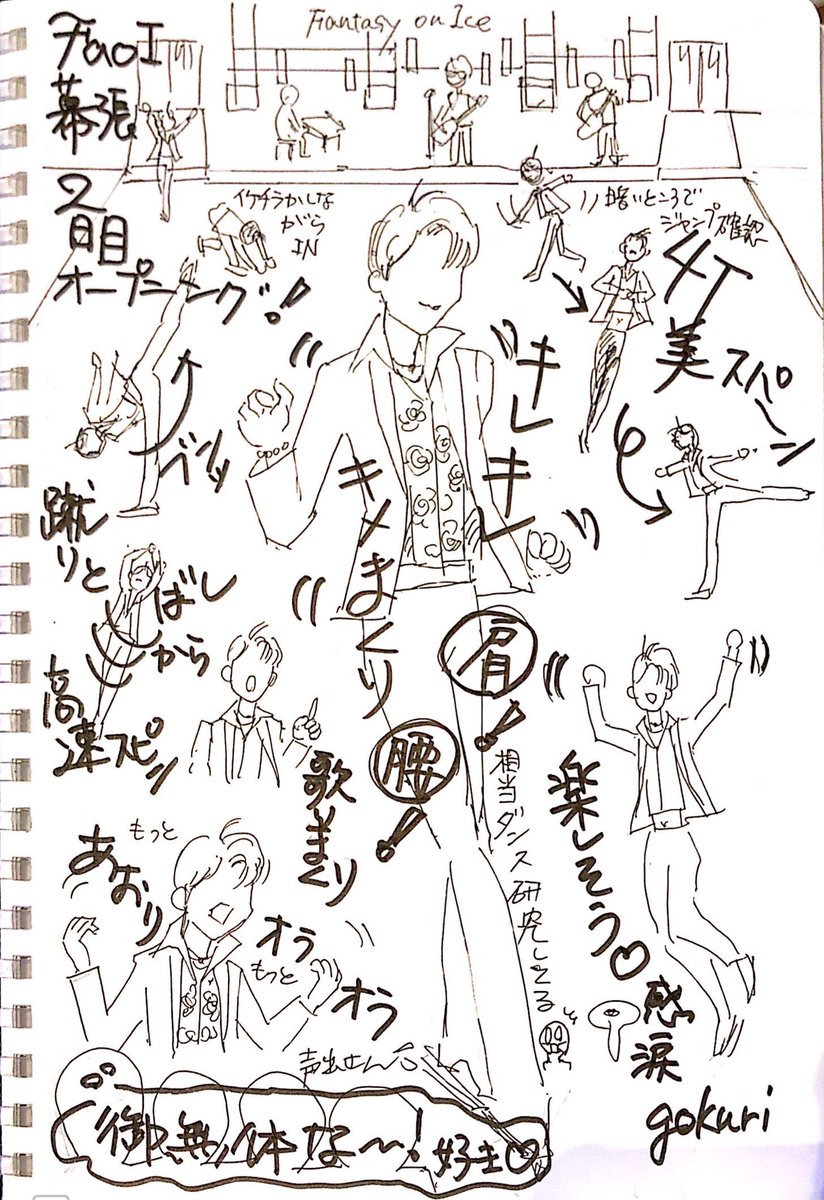 Fantasy on Ice
FaoI
幕張
2日目
オープニング!
イケチラかしな
がら
IN
暗いところで
ジャンプ確認
4T
美スパーン
キレキレ
キメまくり
ベシッ
蹴りとばし
から
高速スピン
肩!
腰!
歌いまくり
相当ダンス研究してる
楽しそう♡
感涙
もっと
あおり
オラ
もっと
オラ
声出せん
御無体な〜!好き♡
gokuri